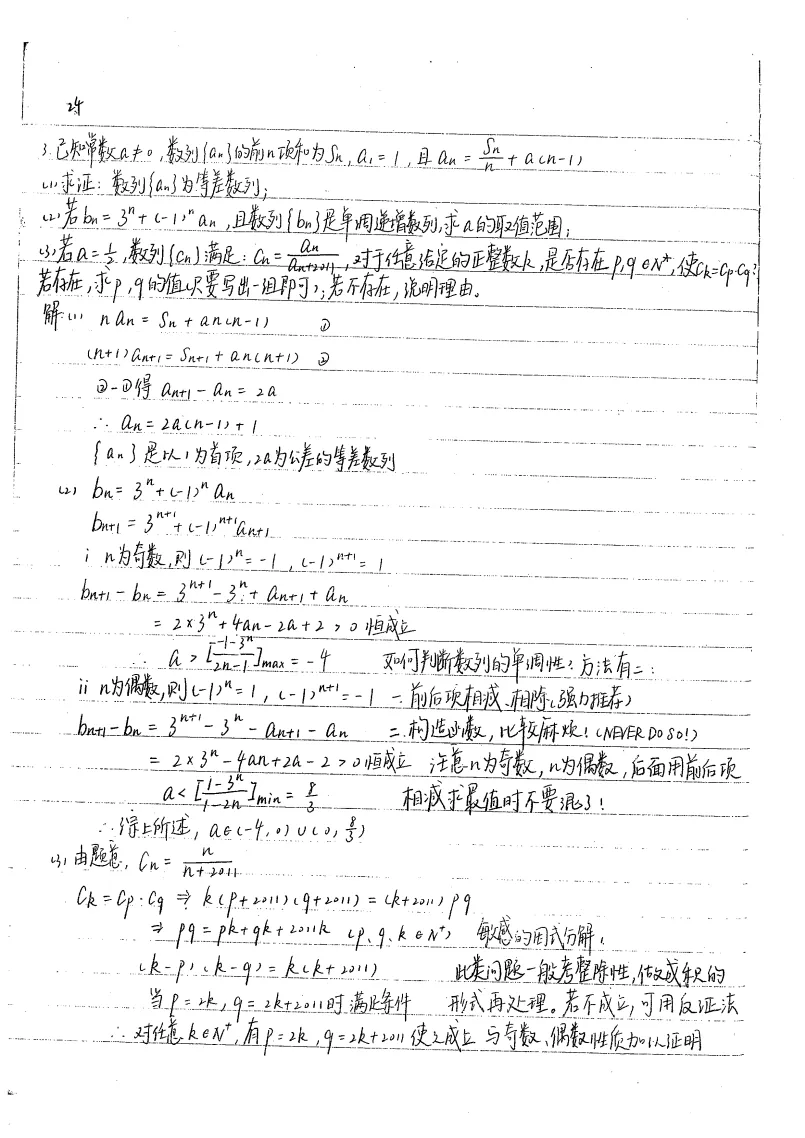 24
3. 已知常数a≠0, 数列{an}的前n项和为Sn, a1=1, 且 an = Sn/n + a(n-1)
(1) 求证: 数列{an}为等差数列;
(2) 若bn = 3^n + (-1)^n an, 且数列{bn}是单调递增数列, 求a的取值范围;
(3) 若a=1/2, 数列{cn}满足: Cn = an/(an+2011), 对于任意给定的正整数k, 是否存在p,q∈N*, 使Ck=Cp·Cq?
若存在, 求p,q的值(只要写出一组即可); 若不存在, 说明理由。
解(1) nan = Sn + an(n-1) ①
(n+1)an+1 = Sn+1 + an(n+1) ②
②-①得 an+1 - an = 2a
∴ an = 2a(n-1)+1
{an}是以1为首项, 2a为公差的等差数列
(2) bn = 3^n + (-1)^n an
bn+1 = 3^(n+1) + (-1)^(n+1) an+1
i n为奇数, 则(-1)^n = -1, (-1)^(n+1) = 1
bn+1 - bn = 3^(n+1) - 3^n + an+1 + an
= 2×3^n + 4an - 2a + 2 > 0 恒成立
∴ a > [(-1-3^n)/(2n-1)]max = -4 如何判断数列的单调性? 方法有二:
ii n为偶数, 则(-1)^n = 1, (-1)^(n+1) = -1 一. 前后项相减、相除(强力推荐)
bn+1 - bn = 3^(n+1) - 3^n - an+1 - an 二. 构造函数, 比较麻烦! (NEVER DO SO!)
= 2×3^n - 4an + 2a - 2 > 0 恒成立 注意n为奇数, n为偶数, 后面用前后项
a < [(1-3^n)/(1-2n)]min = 8/3 相减求最值时不要混了!
∴ 综上所述, a∈(-4,0)∪(0,8/3)
(3) 由题意, Cn = n/(n+2011)
Ck = Cp·Cq ⇒ k(p+2011)(q+2011) = (k+2011)pq
⇒ pq = pk+qk+2011k (p、q、k∈N*) 敏感的因式分解,
(k-p)(k-q) = k(k+2011) 此类问题一般考整除性, 化成乘积的
当p=2k, q=2k+2011时满足条件 形式再处理。若不成立, 可用反证法
∴ 对任意k∈N*, 有p=2k, q=2k+2011使之成立 与奇数、偶数性质加以证明